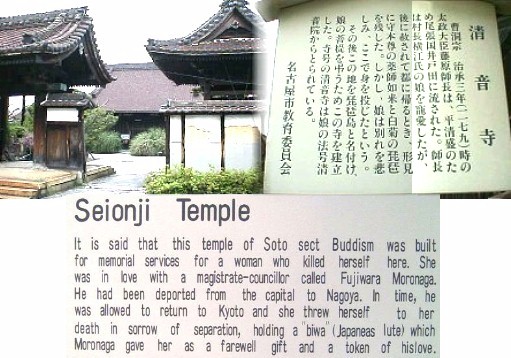 清音寺
曹洞宗 治承三年(一一七九)時の
太政大臣藤原師長は、平清盛のた
め尾張国井戸田に流された。師長
は村長横江氏の娘を寵愛したが、
後に赦されて都に帰るとき、形見
に守本尊の薬師如来と白菊の琵琶
を残した。しかし、娘は別れを悲
しみ、ここで身を投じたという。
その後この地を琵琶島と名付け、
娘の菩提を弔うためこの寺を建立
した。寺号の清音寺は娘の法号清
音院からとられている。
名古屋市教育委員会
Seionji Temple
It is said that this temple of Soto sect Buddism was built
for memorial services for a woman who killed herself here. She
was in love with a magistrate-councillor called Fujiwara Moronaga.
He had been deported from the capital to Nagoya. In time, he
was allowed to return to Kyoto and she threw herself to her
death in sorrow of separation, holding a "biwa" (Japaneas lute) which
Moronaga gave her as a farewell gift and a token of hislove.